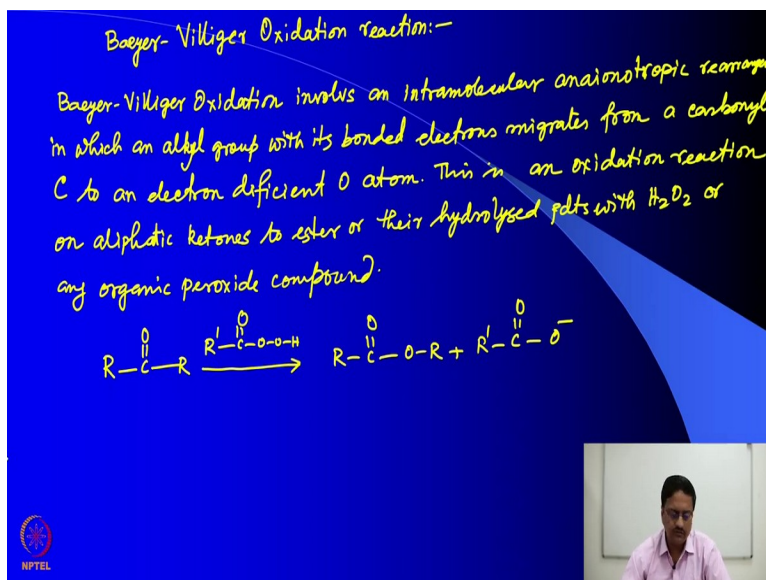 Baeyer-Villiger Oxidation reaction:-
Baeyer-Villiger Oxidation involvs an intramolecular anaionotropic rearrange
in which an alkyl group with its bonded electrons migrates from a carbonyl
C to an electron deficient O atom. This is an oxidation reaction
on aliphatic ketones to ester or their hydrolysed pdts with H₂O₂ or
any organic peroxide compound.
R-C(=O)-R R'-C(=O)-O-O-H → R-C(=O)-O-R + R'-C(=O)-O⁻
NPTEL